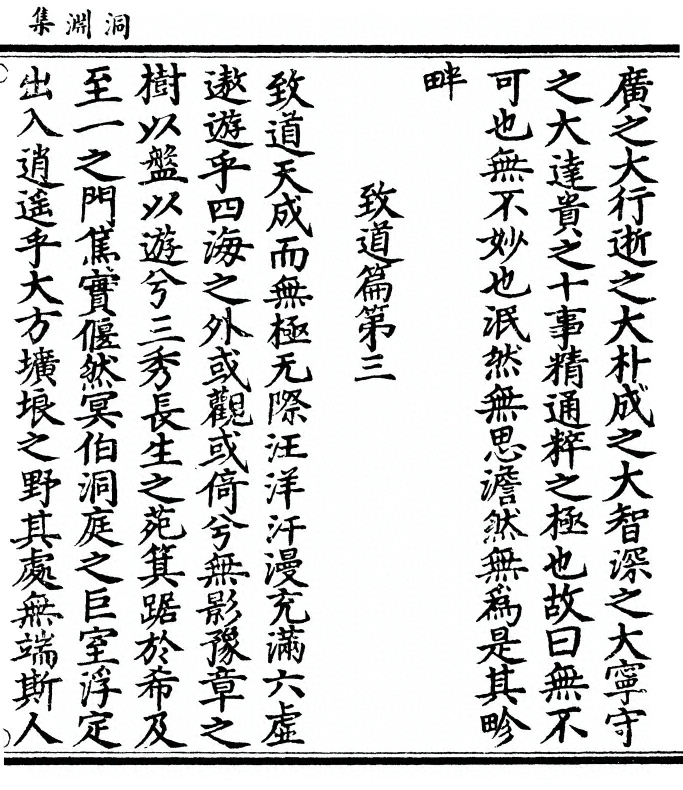 洞淵集
廣之大行逝之大朴成之大智深之大寧守
之大達貴之十事精通粹之極也故曰無不
可也無不妙也泯然無思澹然無爲是其畛
畔
致道篇第三
致道天成而無極无際汪洋汗漫充滿六虛
遨遊乎四海之外或觀或倚兮無影豫章之
樹以盤以遊兮三秀長生之苑箕踞於希及
至一之門篤實偃然冥伯洞庭之巨室浮定
出入逍遥乎大方壙埌之野其處無端斯人